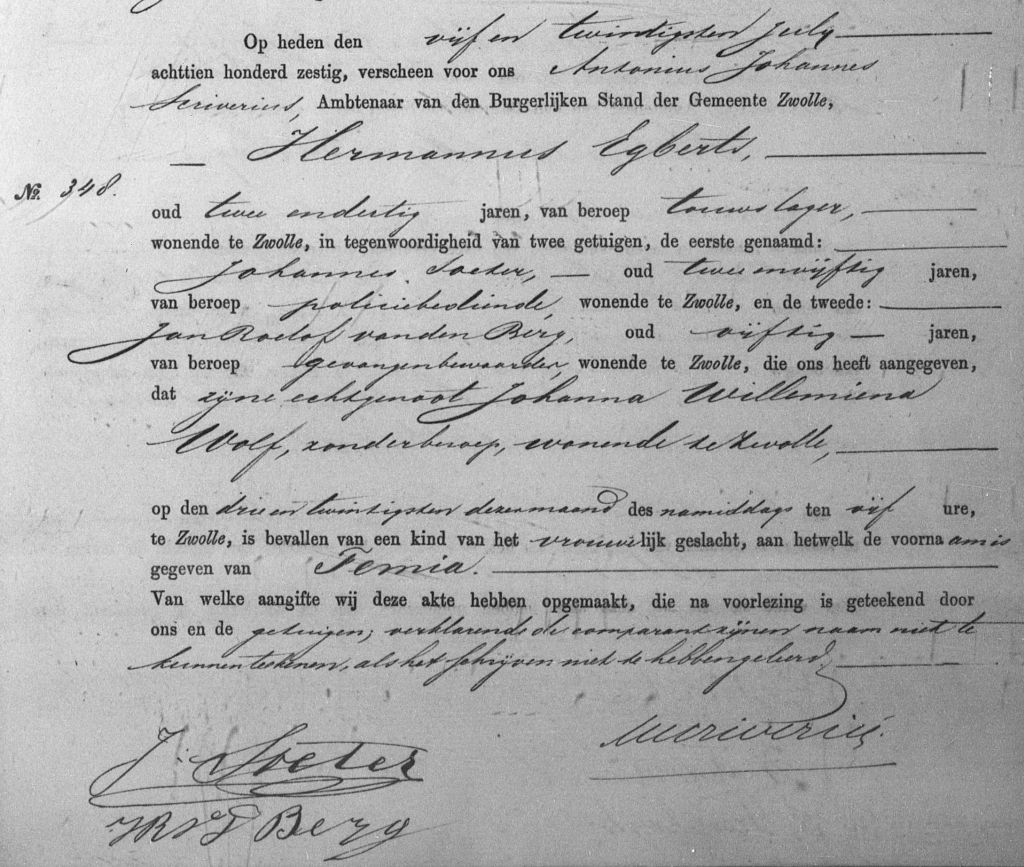 Op heden den vijf en twintigsten July
achttien honderd zestig, verscheen voor ons Antonius Johannes
Scriverius, Ambtenaar van den Burgerlijken Stand der Gemeente Zwolle,
Hermannus Egberts,
No. 348.
oud twee en dertig jaren, van beroep touwslager,
wonende te Zwolle, in tegenwoordigheid van twee getuigen, de eerste genaamd:
Johannes Soeter, oud twee en vijftig jaren,
van beroep policiebediende, wonende te Zwolle, en de tweede:
Jan Roelof van den Berg, oud vijftig jaren,
van beroep gevangenbewaarder, wonende te Zwolle, die ons heeft aangegeven,
dat zijne echtgenoot Johanna Willemiena
Wolf, zonder beroep, wonende te Zwolle,
op den drie en twintigsten dezer maand des namiddags ten vijf ure,
te Zwolle, is bevallen van een kind van het vrouwelijk geslacht, aan hetwelk de voornaam is
gegeven van Femia.
Van welke aangifte wij deze akte hebben opgemaakt, die na voorlezing is geteekend door
ons en de getuigen, verklarende de comparant zijnen naam niet te
kunnen teekenen, als het schrijven niet te hebben geleerd.
Scriverius.
J. Soeter
JR vd Berg